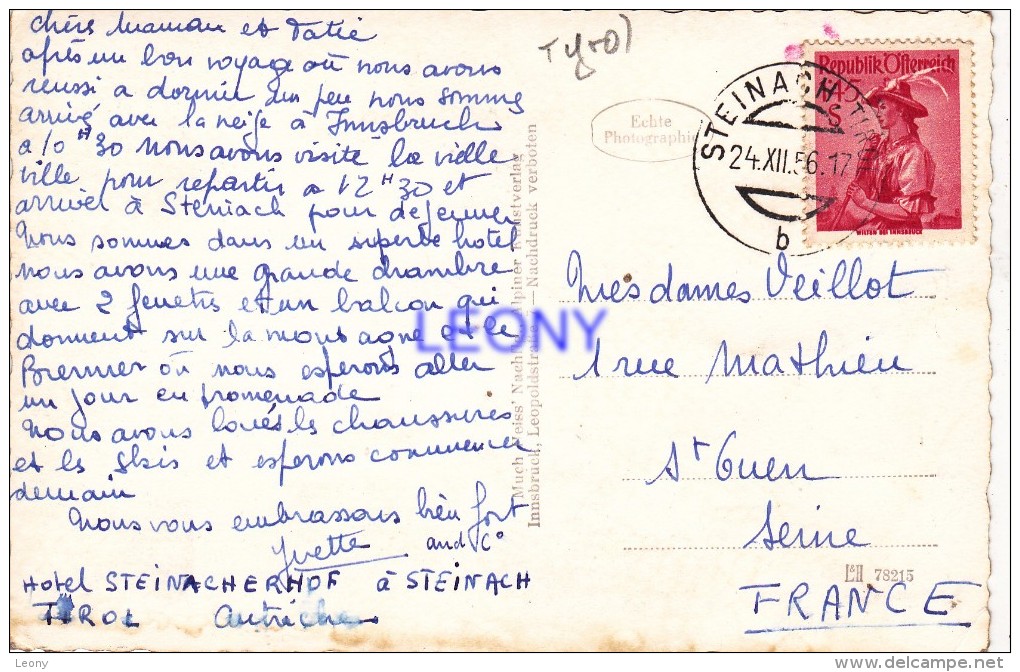 chère Maman et Tatie
après un bon voyage où nous avons
reussi a dormir un peu nous somme
arrivé avec la neige à Innsbruck
a 10 H 30 nous avons visite la vielle
ville pour repartir a 12 H 30 et
arriver à Steinach pour dejeuner
Nous sommes dans un superbe hotel
nous avons une grande chambre
avec 2 fenetres et un balcon qui
donnent sur la montagne et le
Brenner où nous esperons aller
un jour en promenade
Nous avons loués les chaussures
et les skis et esperons commencer
demain
Nous vous embrassons bien fort
Yvette and C°
Hotel STEINACHERHOF à STEINACH
TIROL Autriche
Tyrol
Echte
Photographie
Much Heiss' Nachf. Alpiner Kunstverlag
Innsbruck, Leopoldstraße — Nachdruck verboten
Republik Österreich
1.45
S
WILTEN BEI INNSBRUCK
STEINACH TIROL
24.XII.56.17
b
Mesdames Veillot
1 rue Mathieu
St Ouen
Seine
FRANCE
L&H 78215
LEONY
© Leony
http://www.delcampe.net